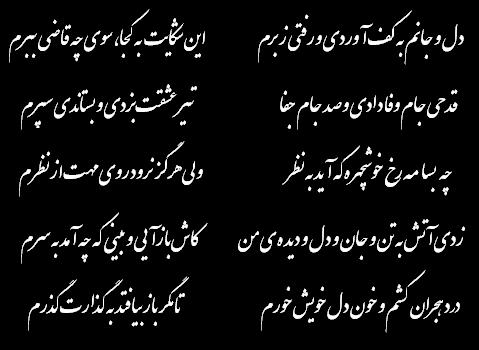 دل و جانم به کف آوردی و رفتی ز برم این شکایت به کجا، سوی چه قاضی ببرم
قدحی جام وفا دادی و صد جام جفا تیر عشقت بزدی و بستاندی سپرم
چه بسا مه رخ خوشچهره که آید به نظر ولی هرگز نرود روی مهت از نظرم
زدی آتش به تن و جان و دل و دیده ی من کاش بازآیی و ببینی که چه آمد به سرم
درد هجران کشم و خون دل خویش خورم تا مگر باز بیافتد به گذارت گذرم